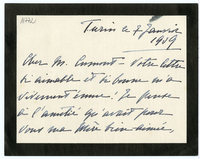 Turin le 7 Janvier
1909
Cher M. Cumont - Votre lettre
si aimable et si bonne m'a
vivement émue! Je pense
à l'amitié qu'avait pour
vous ma Mère bien aimée,